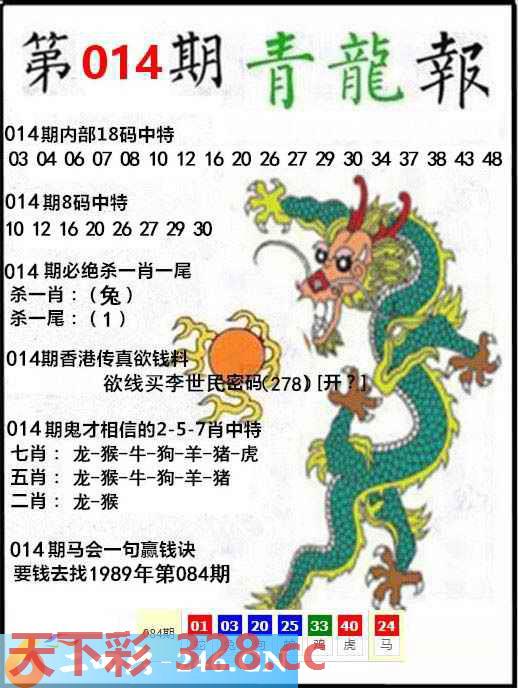 第014期青龍報
014期内部18码中特
03 04 06 07 08 10 12 16 20 26 27 29 30 34 37 38 43 48
014期8码中特
10 12 16 20 26 27 29 30
014期必绝杀一肖一尾
杀一肖：(兔)
杀一尾：(1)
014期香港传真欲钱料
欲线买李世民密码(278)[开?]
014期鬼才相信的2-5-7肖中特
七肖：龙-猴-牛-狗-羊-猪-虎
五肖：龙-猴-牛-狗-羊-猪
二肖：龙-猴
014期马会一句赢钱诀
要钱去找1989年第084期
084期 01 03 20 25 33 40 24
鸡 虎 马
天下彩 328.cc